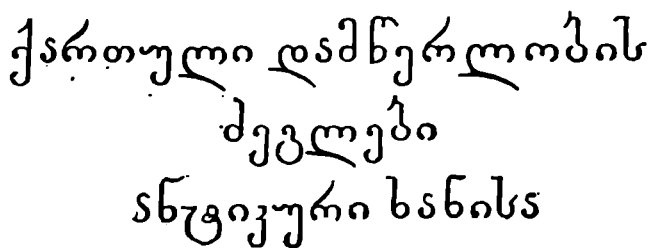 ქართული დამწერლობის
ძეგლები
ანტიკური ხანისა